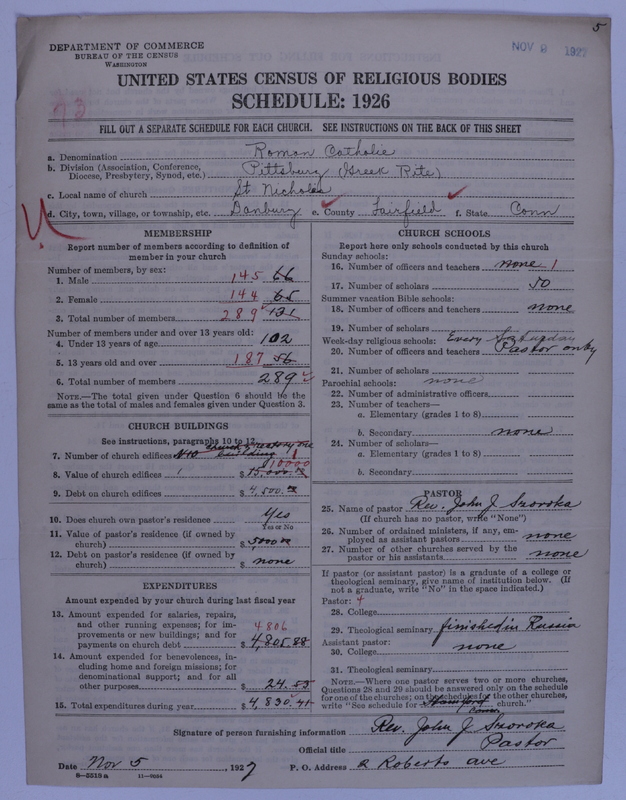 5
DEPARTMENT OF COMMERCE
BUREAU OF THE CENSUS
WASHINGTON
NOV 9 1927
UNITED STATES CENSUS OF RELIGIOUS BODIES
SCHEDULE: 1926
73
FILL OUT A SEPARATE SCHEDULE FOR EACH CHURCH. SEE INSTRUCTIONS ON THE BACK OF THIS SHEET
a. Denomination Roman Catholic
b. Division (Association, Conference, Diocese, Presbytery, Synod, etc.) Pittsburg (Greek Rite)
c. Local name of church St Nicholas
d. City, town, village, or township, etc. Danbury e. County Fairfield f. State Conn
MEMBERSHIP
Report number of members according to definition of member in your church
Number of members, by sex:
1. Male 145 66
2. Female 144 65
3. Total number of members 289 131
Number of members under and over 13 years old:
4. Under 13 years of age 102
5. 13 years old and over 187 56
6. Total number of members 289
NOTE.—The total given under Question 6 should be the same as the total of males and females given under Question 3.
CHURCH BUILDINGS
See instructions, paragraphs 10 to 12
church & rectory one
7. Number of church edifices building 1
10000
8. Value of church edifices $ 15,000.00
9. Debt on church edifices $ 4,500.00
10. Does church own pastor's residence Yes
Yes or No
11. Value of pastor's residence (if owned by church) $ 5000 00
12. Debt on pastor's residence (if owned by church) $ none
EXPENDITURES
Amount expended by your church during last fiscal year
13. Amount expended for salaries, repairs, and other running expenses; for improvements or new buildings; and for payments on church debt 4806 $ 4,805.88
14. Amount expended for benevolences, including home and foreign missions; for denominational support; and for all other purposes $ 24.53
15. Total expenditures during year $ 4,830.41
CHURCH SCHOOLS
Report here only schools conducted by this church
Sunday schools:
16. Number of officers and teachers none 1
17. Number of scholars 50
Summer vacation Bible schools:
18. Number of officers and teachers none
19. Number of scholars
Week-day religious schools: Every Saturday
20. Number of officers and teachers Pastor only
21. Number of scholars
Parochial schools: none
22. Number of administrative officers
23. Number of teachers—
a. Elementary (grades 1 to 8)
b. Secondary none
24. Number of scholars—
a. Elementary (grades 1 to 8)
b. Secondary
PASTOR
25. Name of pastor Rev. John J
(If church has no pastor, write "None")
26. Number of ordained ministers, if any, employed as assistant pastors none
27. Number of other churches served by the pastor or his assistants none
If pastor (or assistant pastor) is a graduate of a college or theological seminary, give name of institution below. (If not a graduate, write "No" in the space indicated.)
Pastor: 4
28. College
29. Theological seminary finished in Russia
Assistant pastor:
30. College none
31. Theological seminary
NOTE.—Where one pastor serves two or more churches, Questions 28 and 29 should be answered only on the schedule for one of the churches; on the schedules for the other churches, write "See schedule for Stamford Conn. church."
Signature of person furnishing information Rev. John J
Official title Pastor
Date Nov 5, 1927 P. O. Address Roberts ave
8—5518a 11—9064